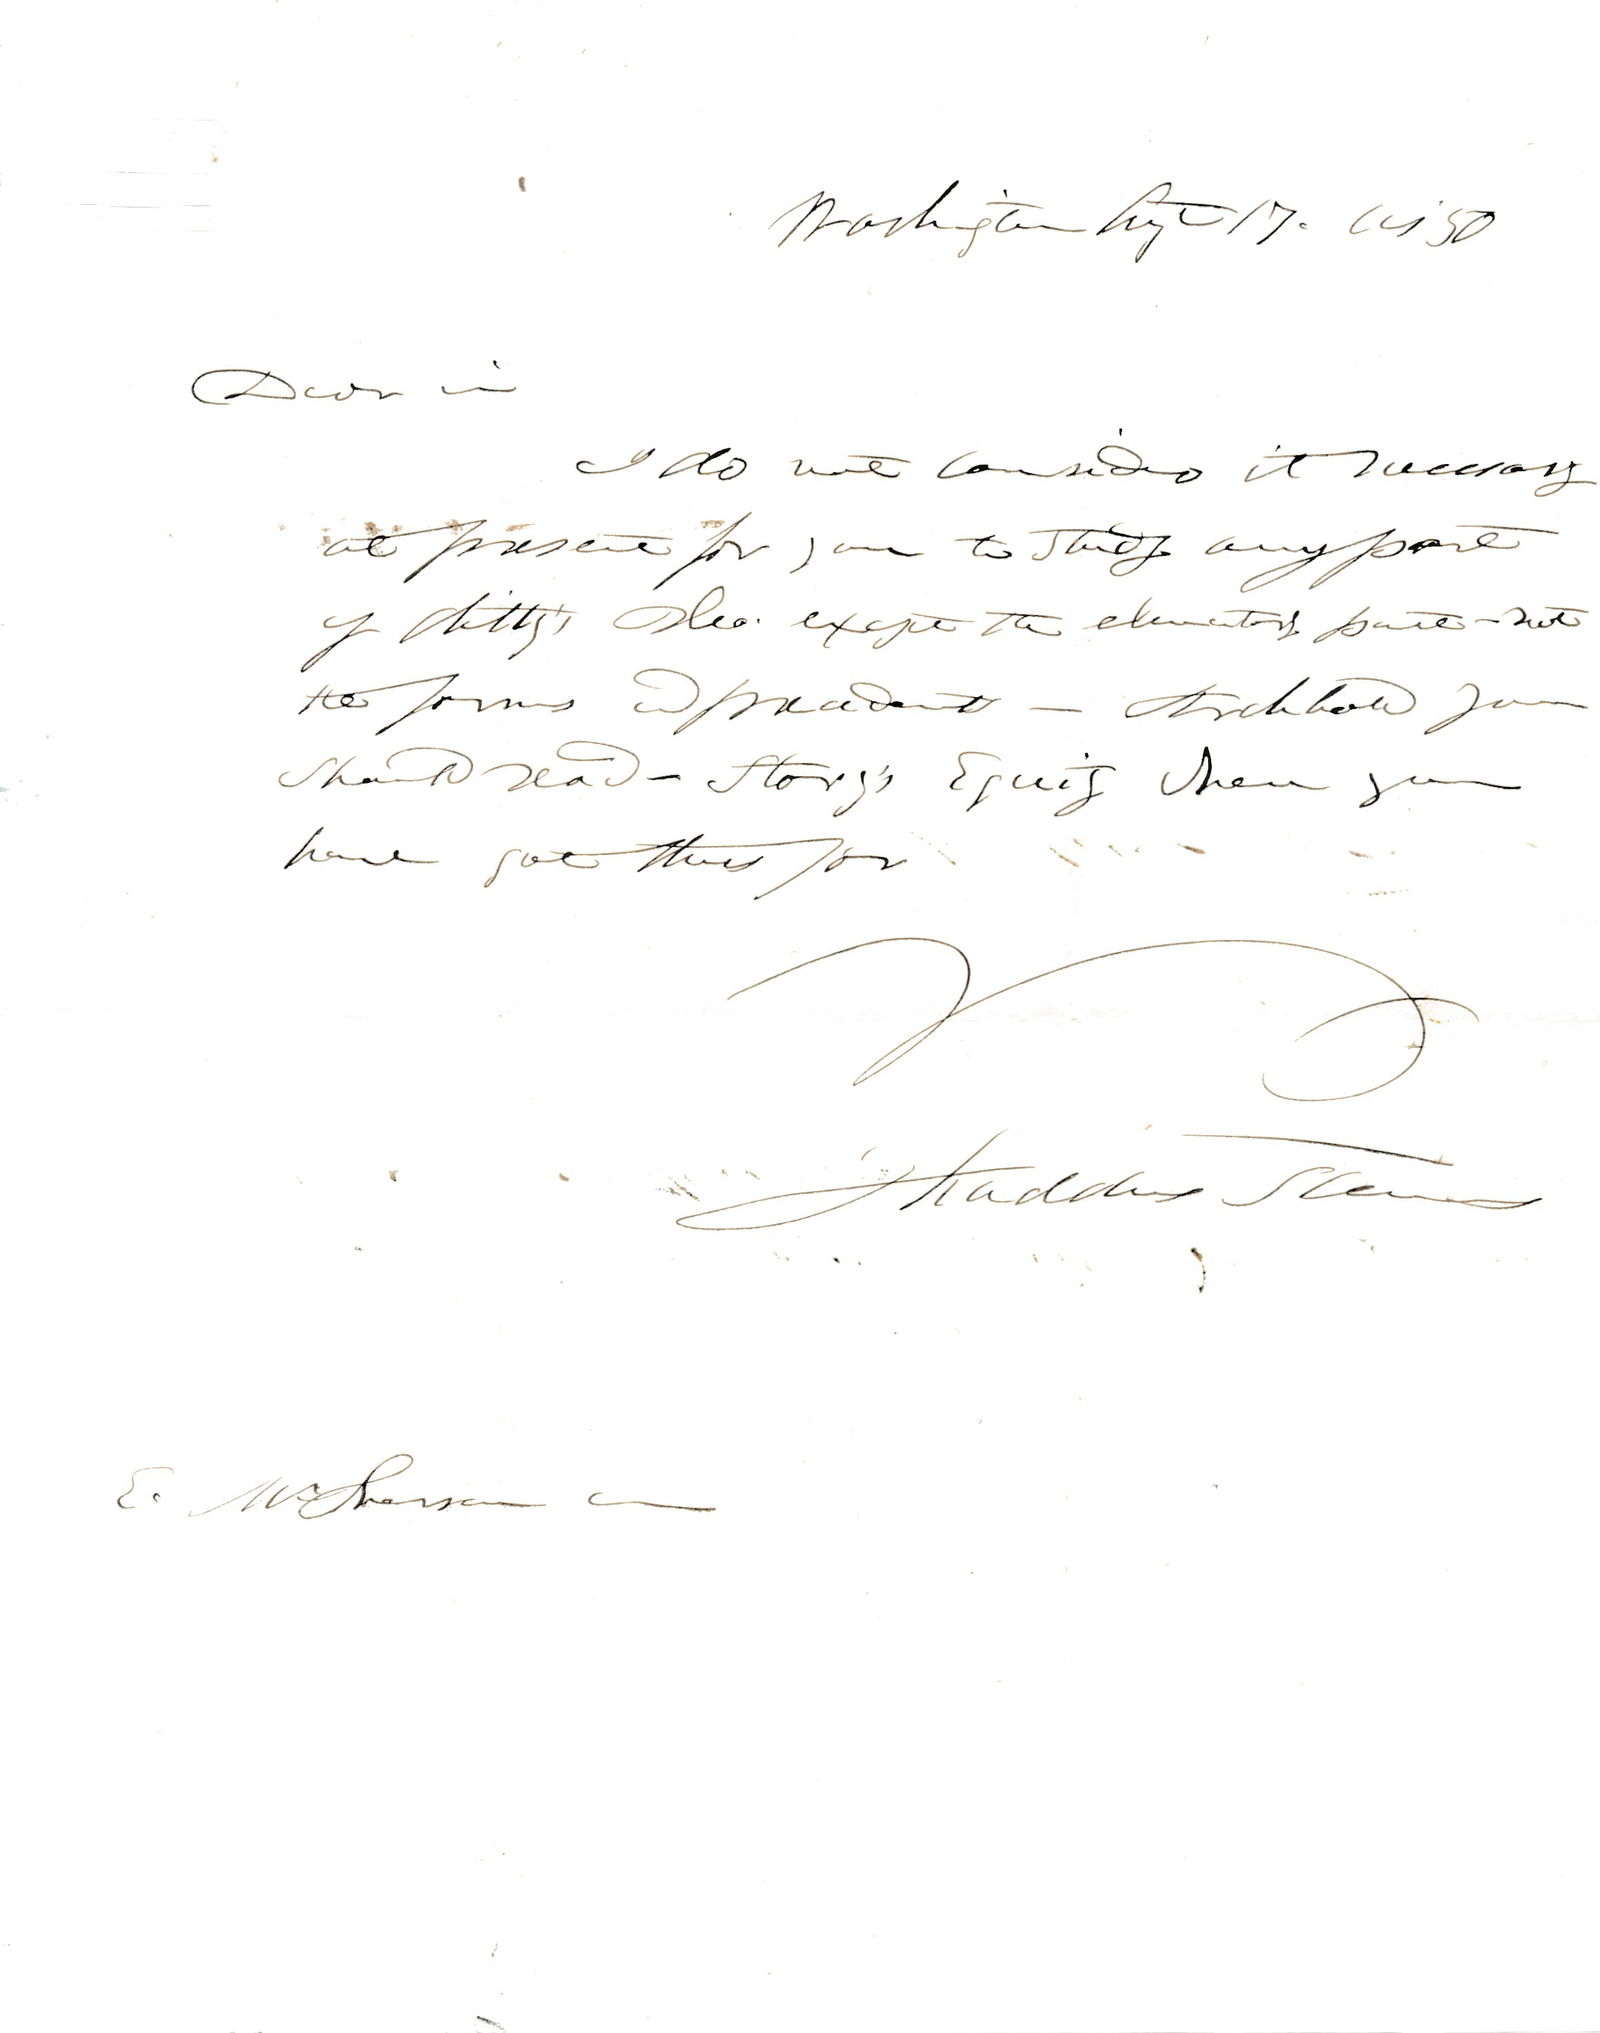 Washington Sept 17. 1850
Dear sir
I do not consider it necessary
at present for you to study any part
of Chitty's Plea. except the elementary part - not
the forms and precedents - Archbold you
should read - Story's Equity when you
have got thus far
Thaddeus Stevens
E. McPherson